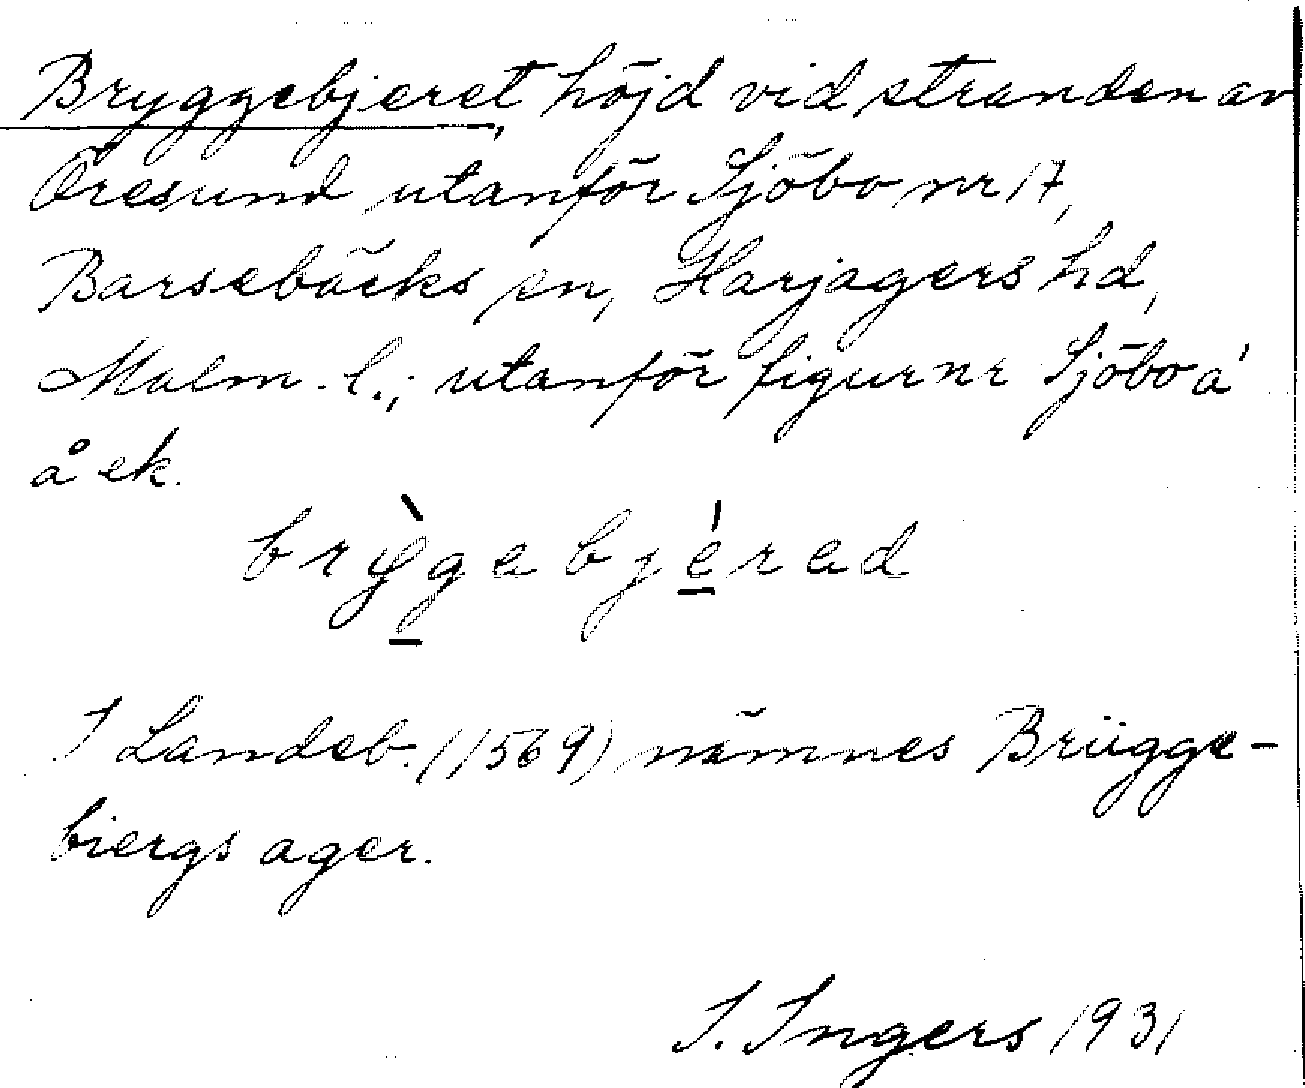 Bryggebjeret, höjd vid stranden av
Öresund utanför Sjöbo nr 17,
Barsebäcks sn, Harjagers hd,
Malm. l.; utanför figurnr Sjöbo á
å ek.
brỳgebjérad
I Landeb. (1569) nämnes Brügge-
biergs ager.
I. Ingers 1931